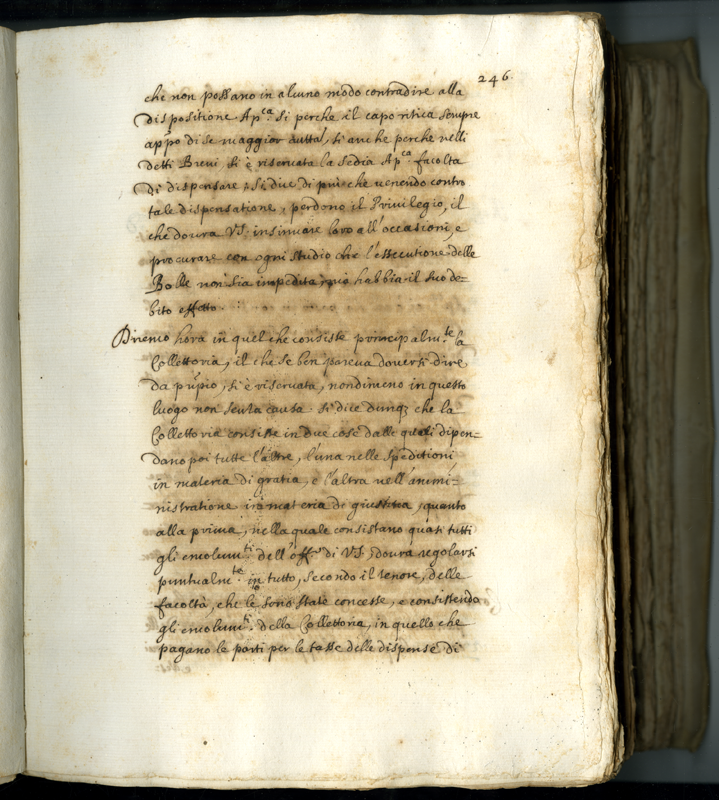 246
che non possano in alcuno modo contradire alla
dispositione Ap.ca si perche il capo istica sempre
appo di se maggior autta, si anche perche nelli
detti Brevi si è riservata la Sedia Ap.ca facolta
di dispensare; si dice di più che venendo contro
tale dispensatione, perdono il Privilegio, il
che doura VS. insinuare loro all'occasioni, e
procurare con ogni studio che l'essecutione delle
Bolle non sia impedita, mà habbia il suo de=
bito effetto.
Diremo hora in quel che consiste principalm.te la
Collettoria, il che se ben pareva doversi dire
da pupio, si è riservata, nondimeno in questo
luogo non senza causa. si dice dunq; che la
Collettoria consiste in due cose dalle quali dipen=
dano poi tutte l'altre, l'una nelle speditioni
in materia di gratia, e l'altra nell'ammi=
nistratione in materia di giustitia, quanto
alla prima, nella quale consistano quasi tutti
gli emolum.ti dell'off.o di VS. doura regolarsi
puntualm.te in tutto, secondo il tenore, delle
facoltà, che le sono state concesse, e consistendo
gli emolum.ti della Collettoria, in quello che
pagano le parti per le tasse delle dispense di